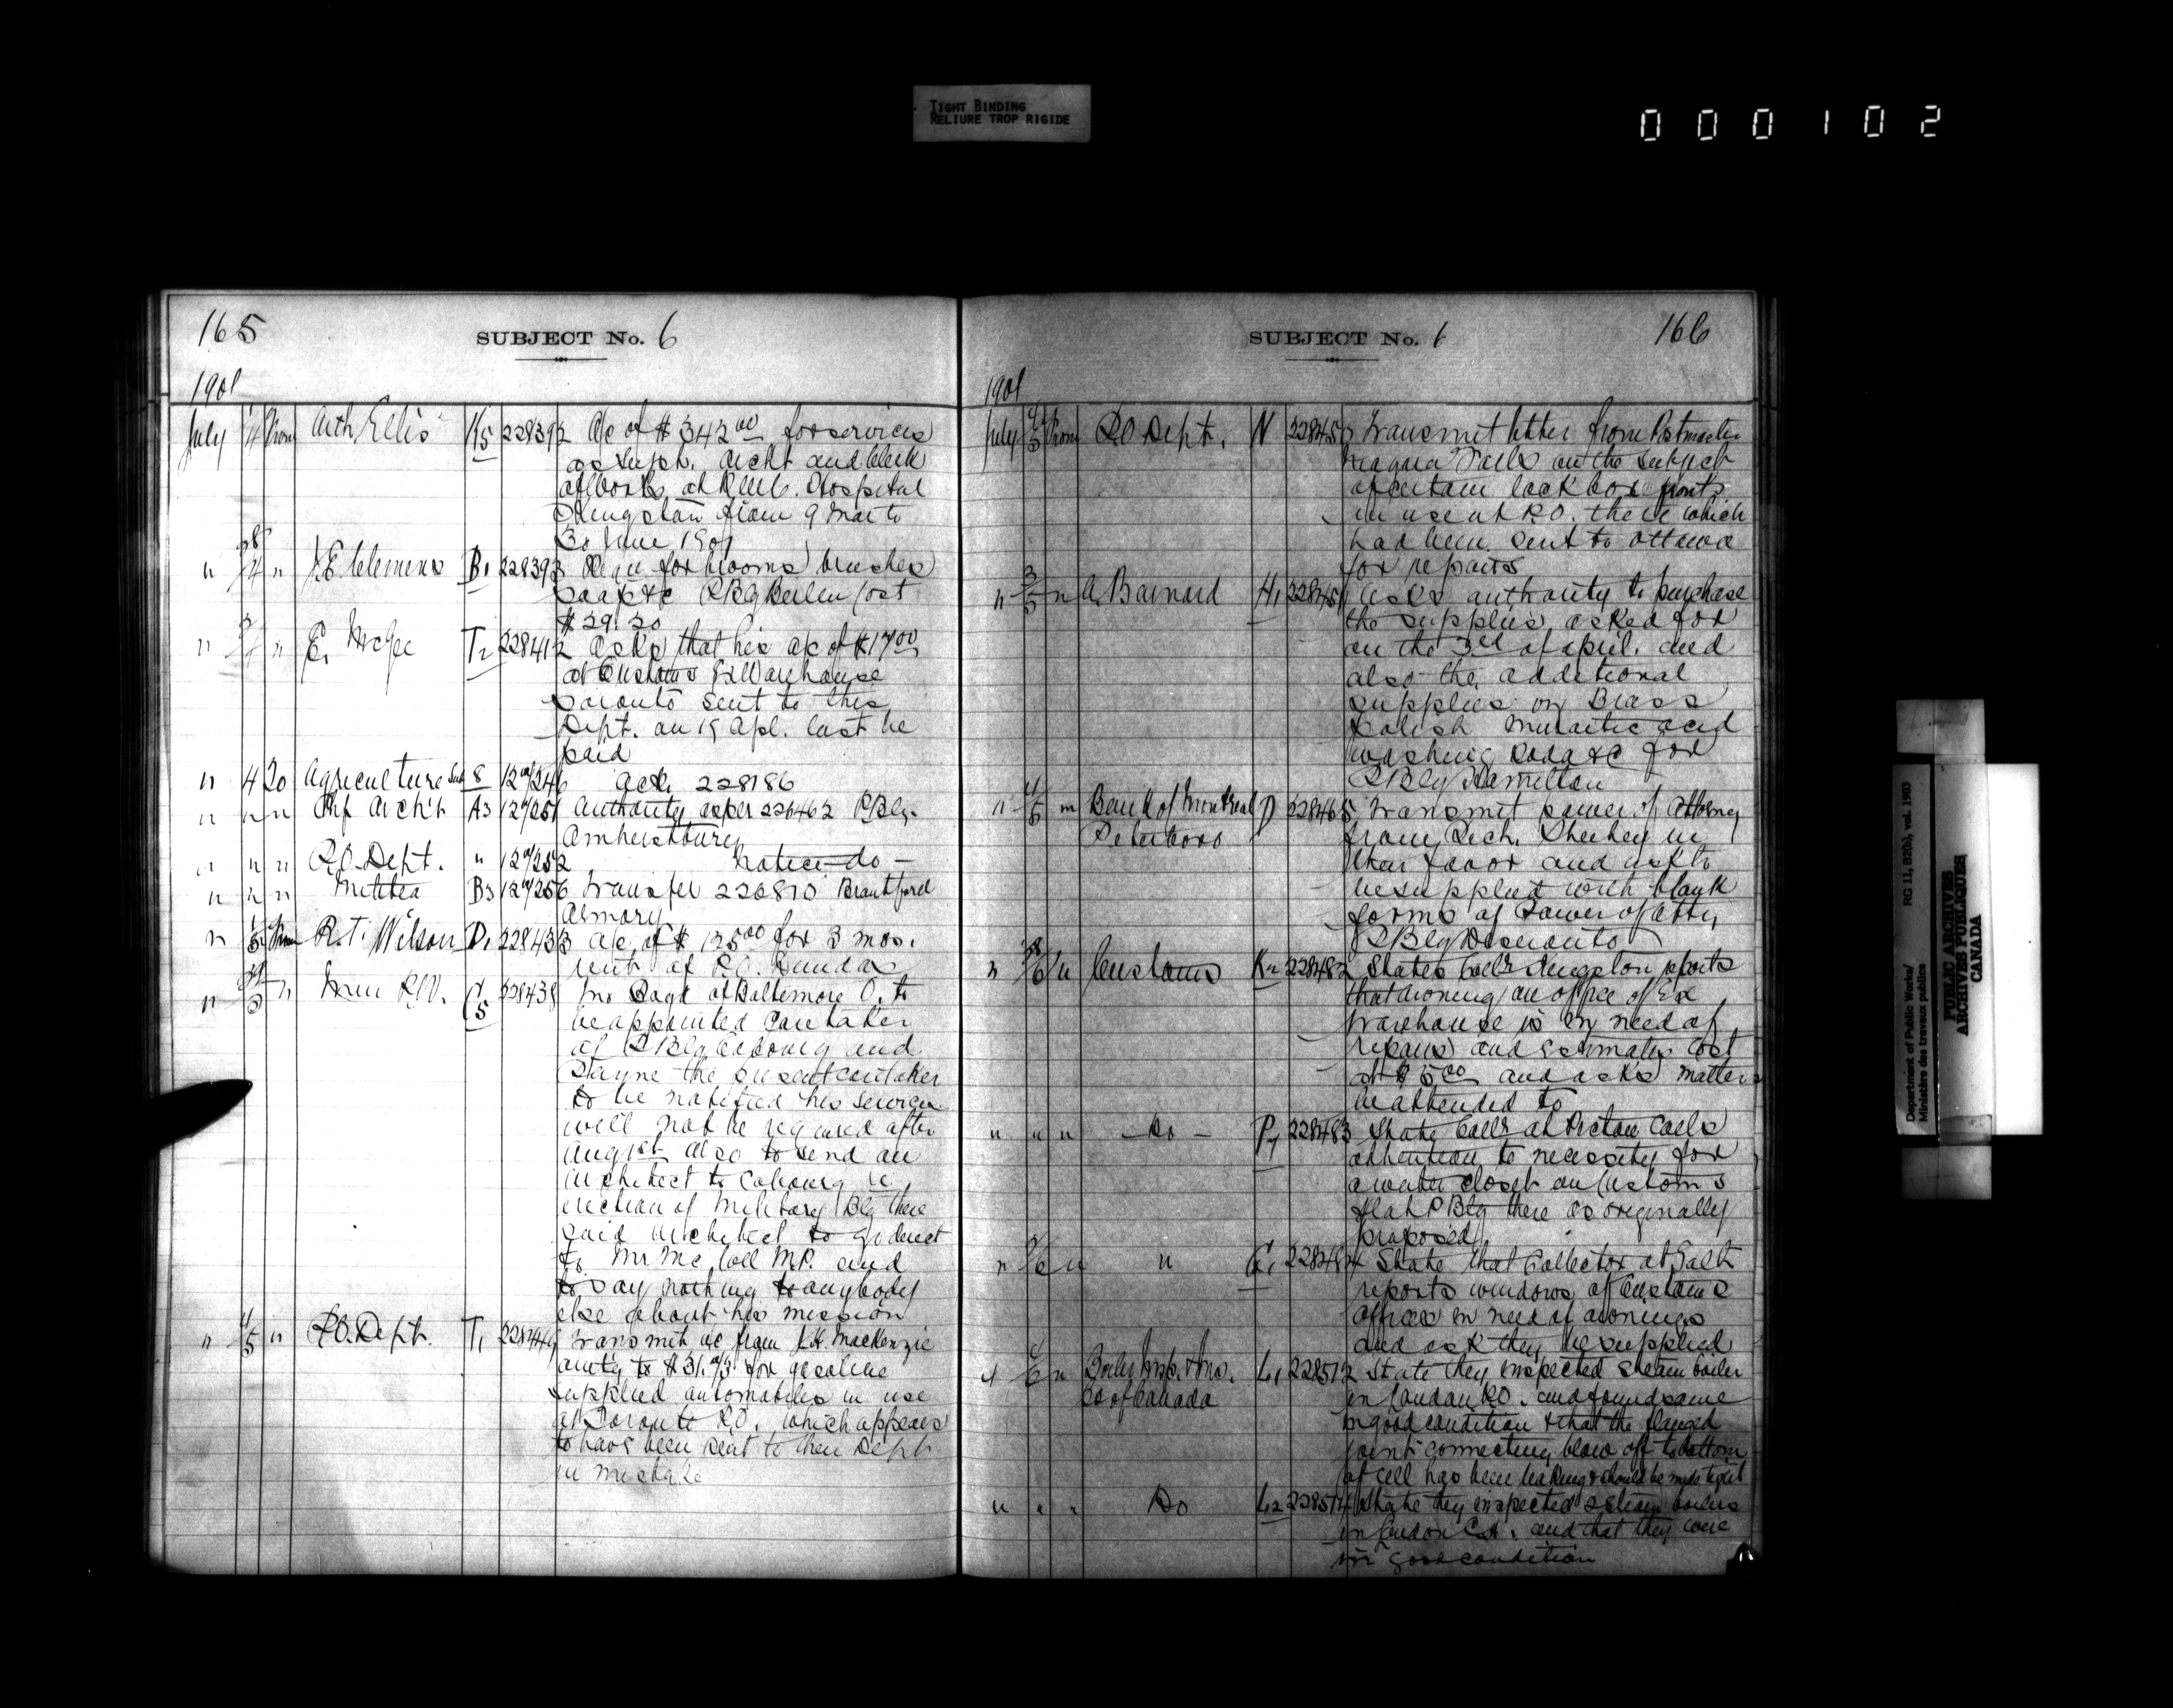 TIGHT BINDING
RELIURE TROP RIGIDE
000102
165
SUBJECT No. 6
1901
July 4 From Arth Ellis K5 228392 a/c of $342.00 for services
as Supt. Archt and Clerk
of Works at R.M.C. Hospital
Kingston from 9 Mar to
30 June 1901
" 28/4 " J.E. Clemens B1 228393 for brooms brushes
soap &c P Bg Berlin Cost
$29.20
" " E. McGee T2 228412 asks that his a/c of $17.00
at Customs Ex Warehouse
Toronto sent to this
Dept. on 19 Apl. last be
paid
" 4 To Agriculture 8 246 ack. 228186
" " " Chf Archt A3 251 Authority as per 226462 P. Blg.
Amherstburg
" " " P.O. Dept. " 252 Notice - do -
" " " Militia B3 256 Transfer 226810 Brantford
Armory
" 5 From R.T. Wilson D1 228433 a/c of $125.00 for 3 mos.
rent of P.O. Dundas
" 5 " C5 228438 Jno Boyd of Baltimore O. to
be appointed Caretaker
of P Blg Cobourg and
Payne the present caretaker
to be notified his services
will not be required after
Aug 1st also to send an
architect to Cobourg re
erection of Military Blg there
said architect to go direct
to Mr McColl M.P. and
to say nothing to anybody
else about his mission
" 4/5 " P.O. Dept. T1 228449 Transmit a/c from J.H. MacKenzie
amtg to $31. for gasoline
supplied automobiles in use
at Toronto P.O. which appears
to have been sent to their Dept.
in mistake
SUBJECT No. 6
166
1901
July 4/5 From P.O. Dept. N Transmit letter from Postmaster
Niagara Falls on the subject
of certain lock box fronts
in use at P.O. there which
had been sent to Ottawa
for repairs
" 3/5 " A. Barnard H1 asks authority to purchase
the supplies asked for
on the 3rd of April. and
also the additional
supplies Brass
Polish Muriatic acid
washing soda &c for
P Blg Hamilton
" 4/5 " Bank of Montreal D 228465 Transmit power of Attorney
Peterboro
from Rich. Sheehey in
their favor and ask to
be supplied with blank
forms of Power of Atty,
P Blg Deseronto
" 28/6 " Customs K2 228482 States Collr Kingston reports
that awning on office of Ex
Warehouse is in need of
repairs and estimates cost
at $5.00 and asks matter
be attended to
" " " - Do - P4 228483 State Collr at Picton calls
attention to necessity for
a water closet on Customs
flat P Blg there as originally
proposed
" /6 " " G1 228484 State that Collector at Galt
reports windows of Customs
offices in need of awnings
and ask they be supplied
" /6 " Boiler Insp. & Ins. L1 228512 State they inspected steam boiler
Co of Canada
in London P.O. and found same
in good condition & that the flanged
joint connecting blow off to bottom
of cell has been leaking & should be made tight
" " " Do L2 228514 State they inspected 2 steam boilers
in London C.H. and that they were
in good condition
Department of Public Works/
Ministère des travaux publics
RG 11, B2(b), vol. 1903
PUBLIC ARCHIVES
ARCHIVES PUBLIQUES
CANADA